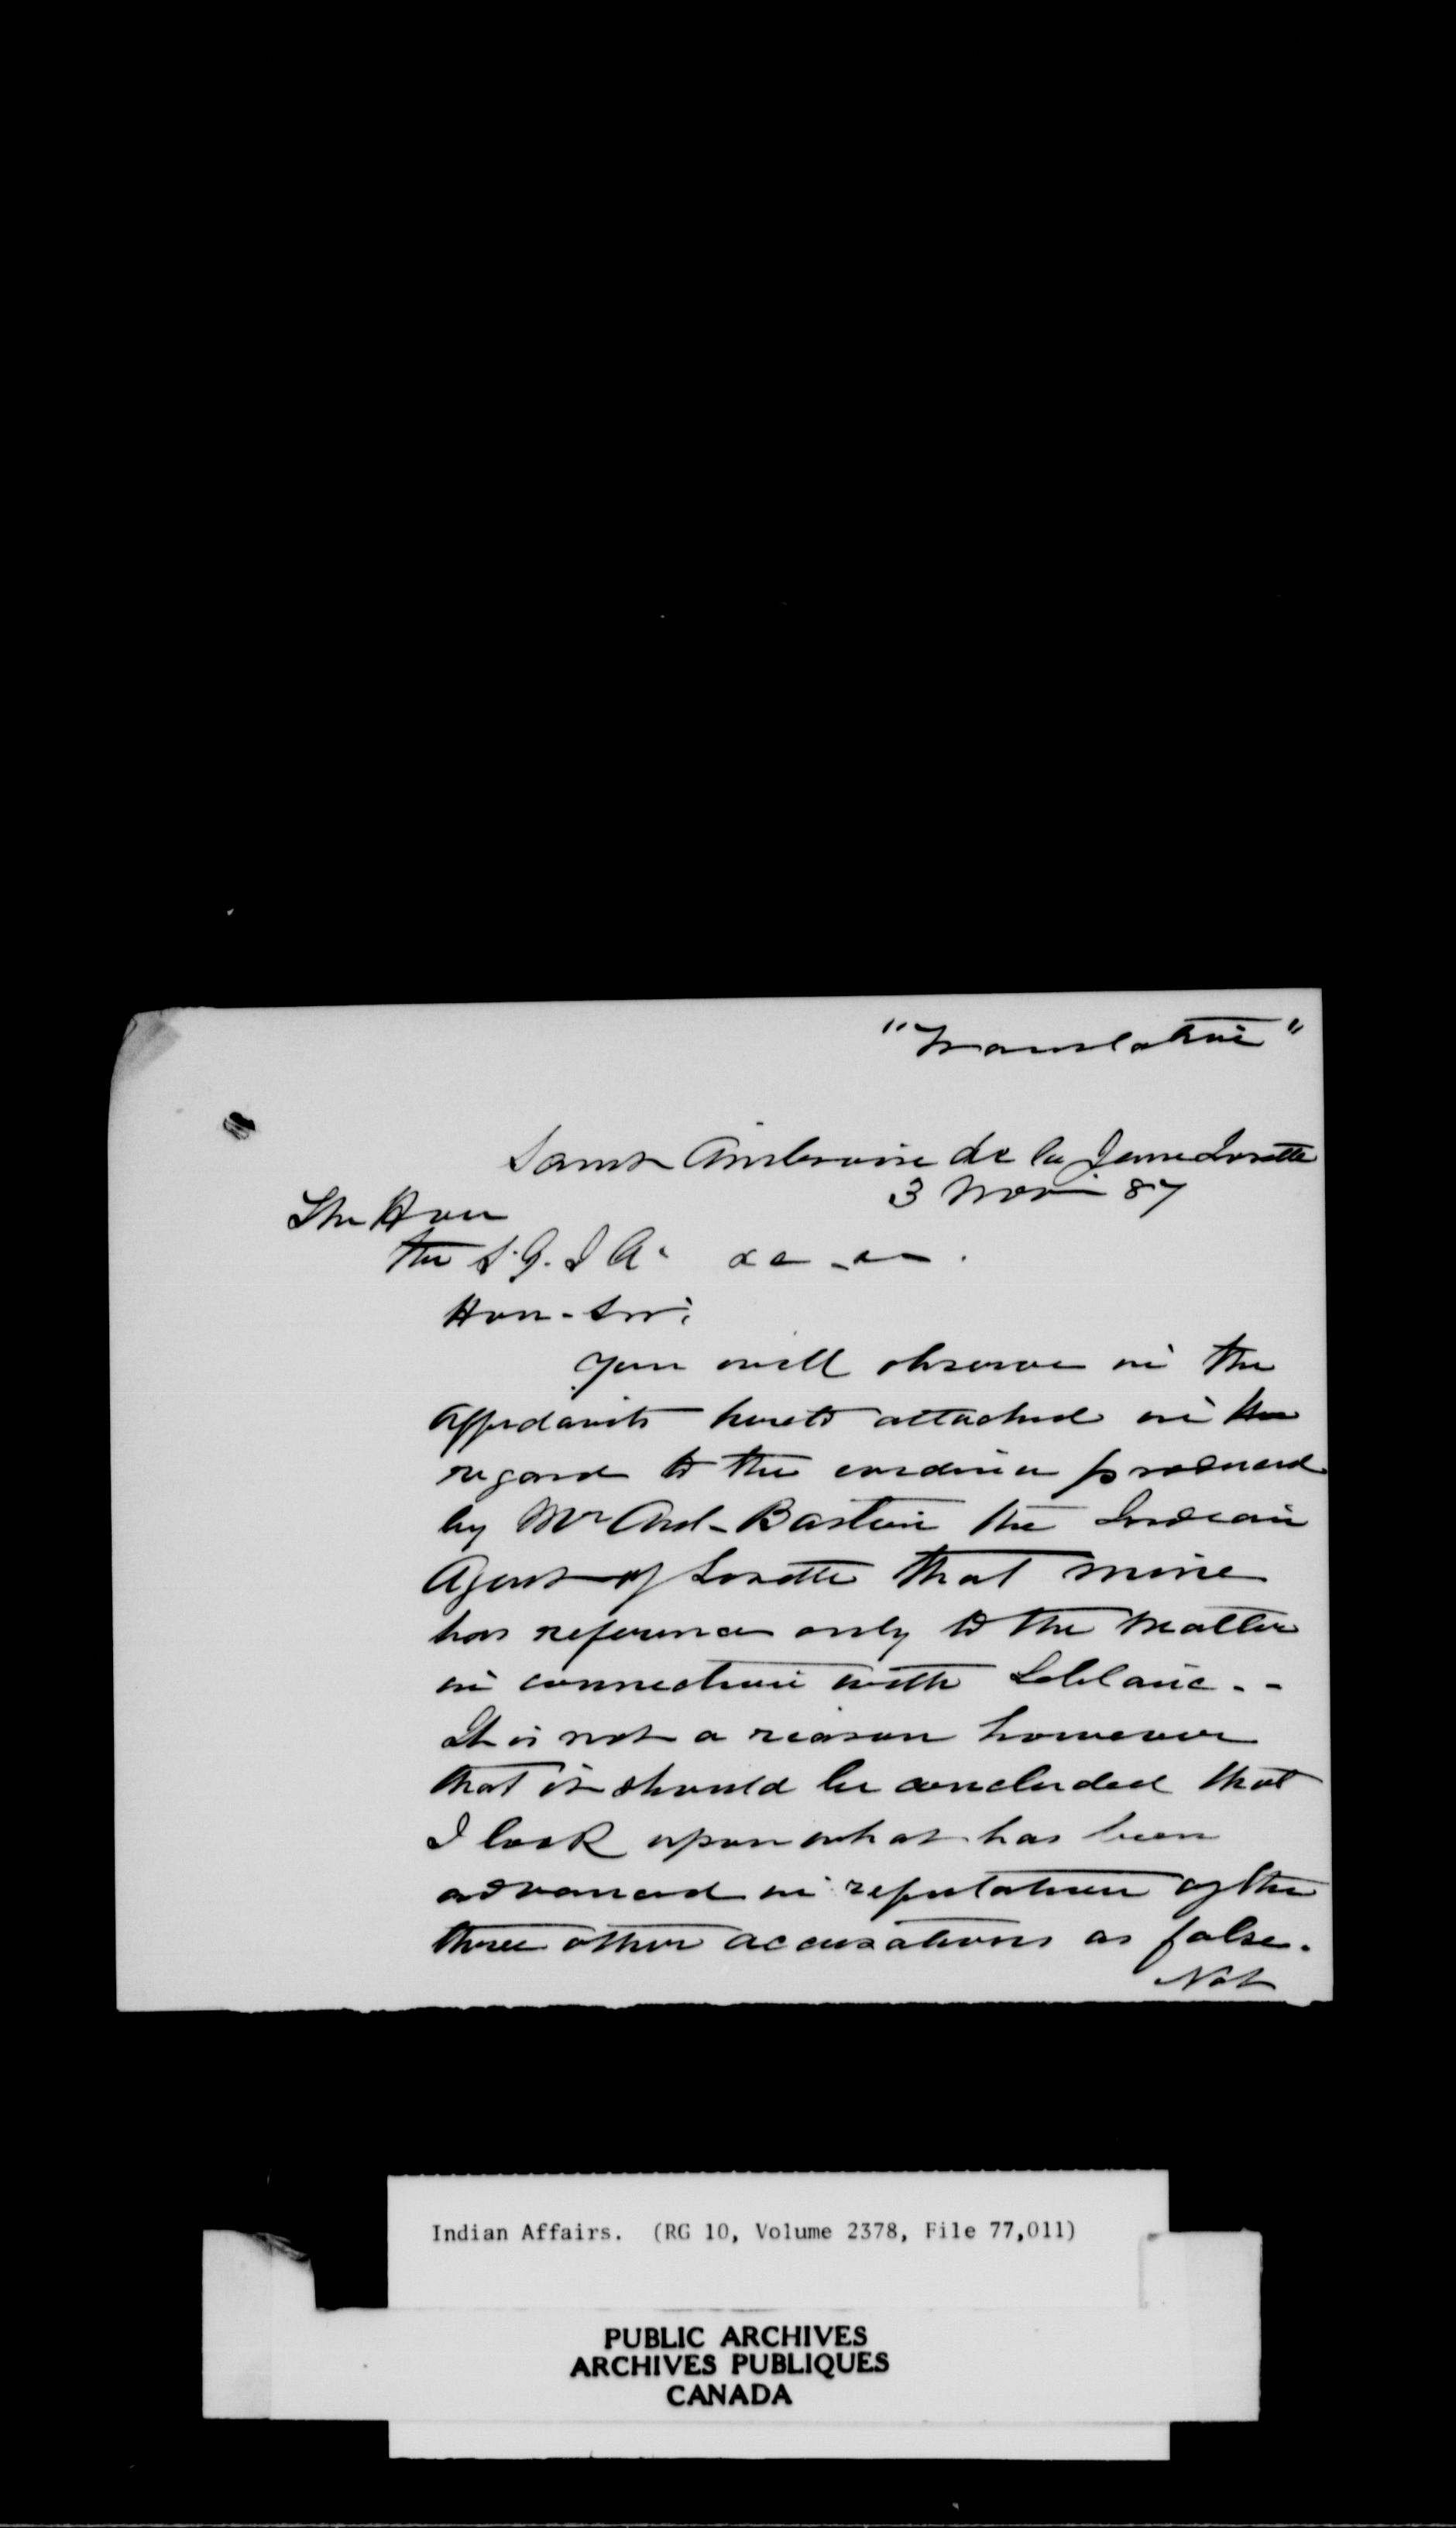 "Translation"
Saint Ambroise de la Jeune Lorette
3 Nov 87
The Hon
the S. G. I A.
Hon. Sir,
You will observe in the
affidavits hereto attached in the
regard to the evidence produced
by Mr Ant. Bastien the Indian
Agent of Lorette that mine
has reference only to the matter
in connection with Leblanc. -
It is not a reason however
that it should be concluded that
I look upon what has been
advanced in refutation of the
three other accusations as false.
Not
Indian Affairs. (RG 10, Volume 2378, File 77,011)
PUBLIC ARCHIVES
ARCHIVES PUBLIQUES
CANADA